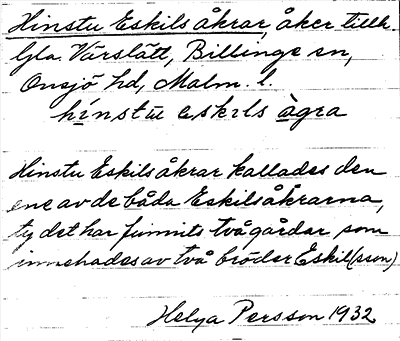 Hinstu Eskils åkrar, åker tillh.
Gla. Värslätt, Billinge sn,
Onsjö hd, Malm. l.
hinstu eskils ågra
Hinstu Eskilsåkrar kallades den
ene av de båda Eskilsåkrarna,
ty det har funnits två gårdar, som
innehades av två bröder Eskil(sson)
Helga Persson 1932